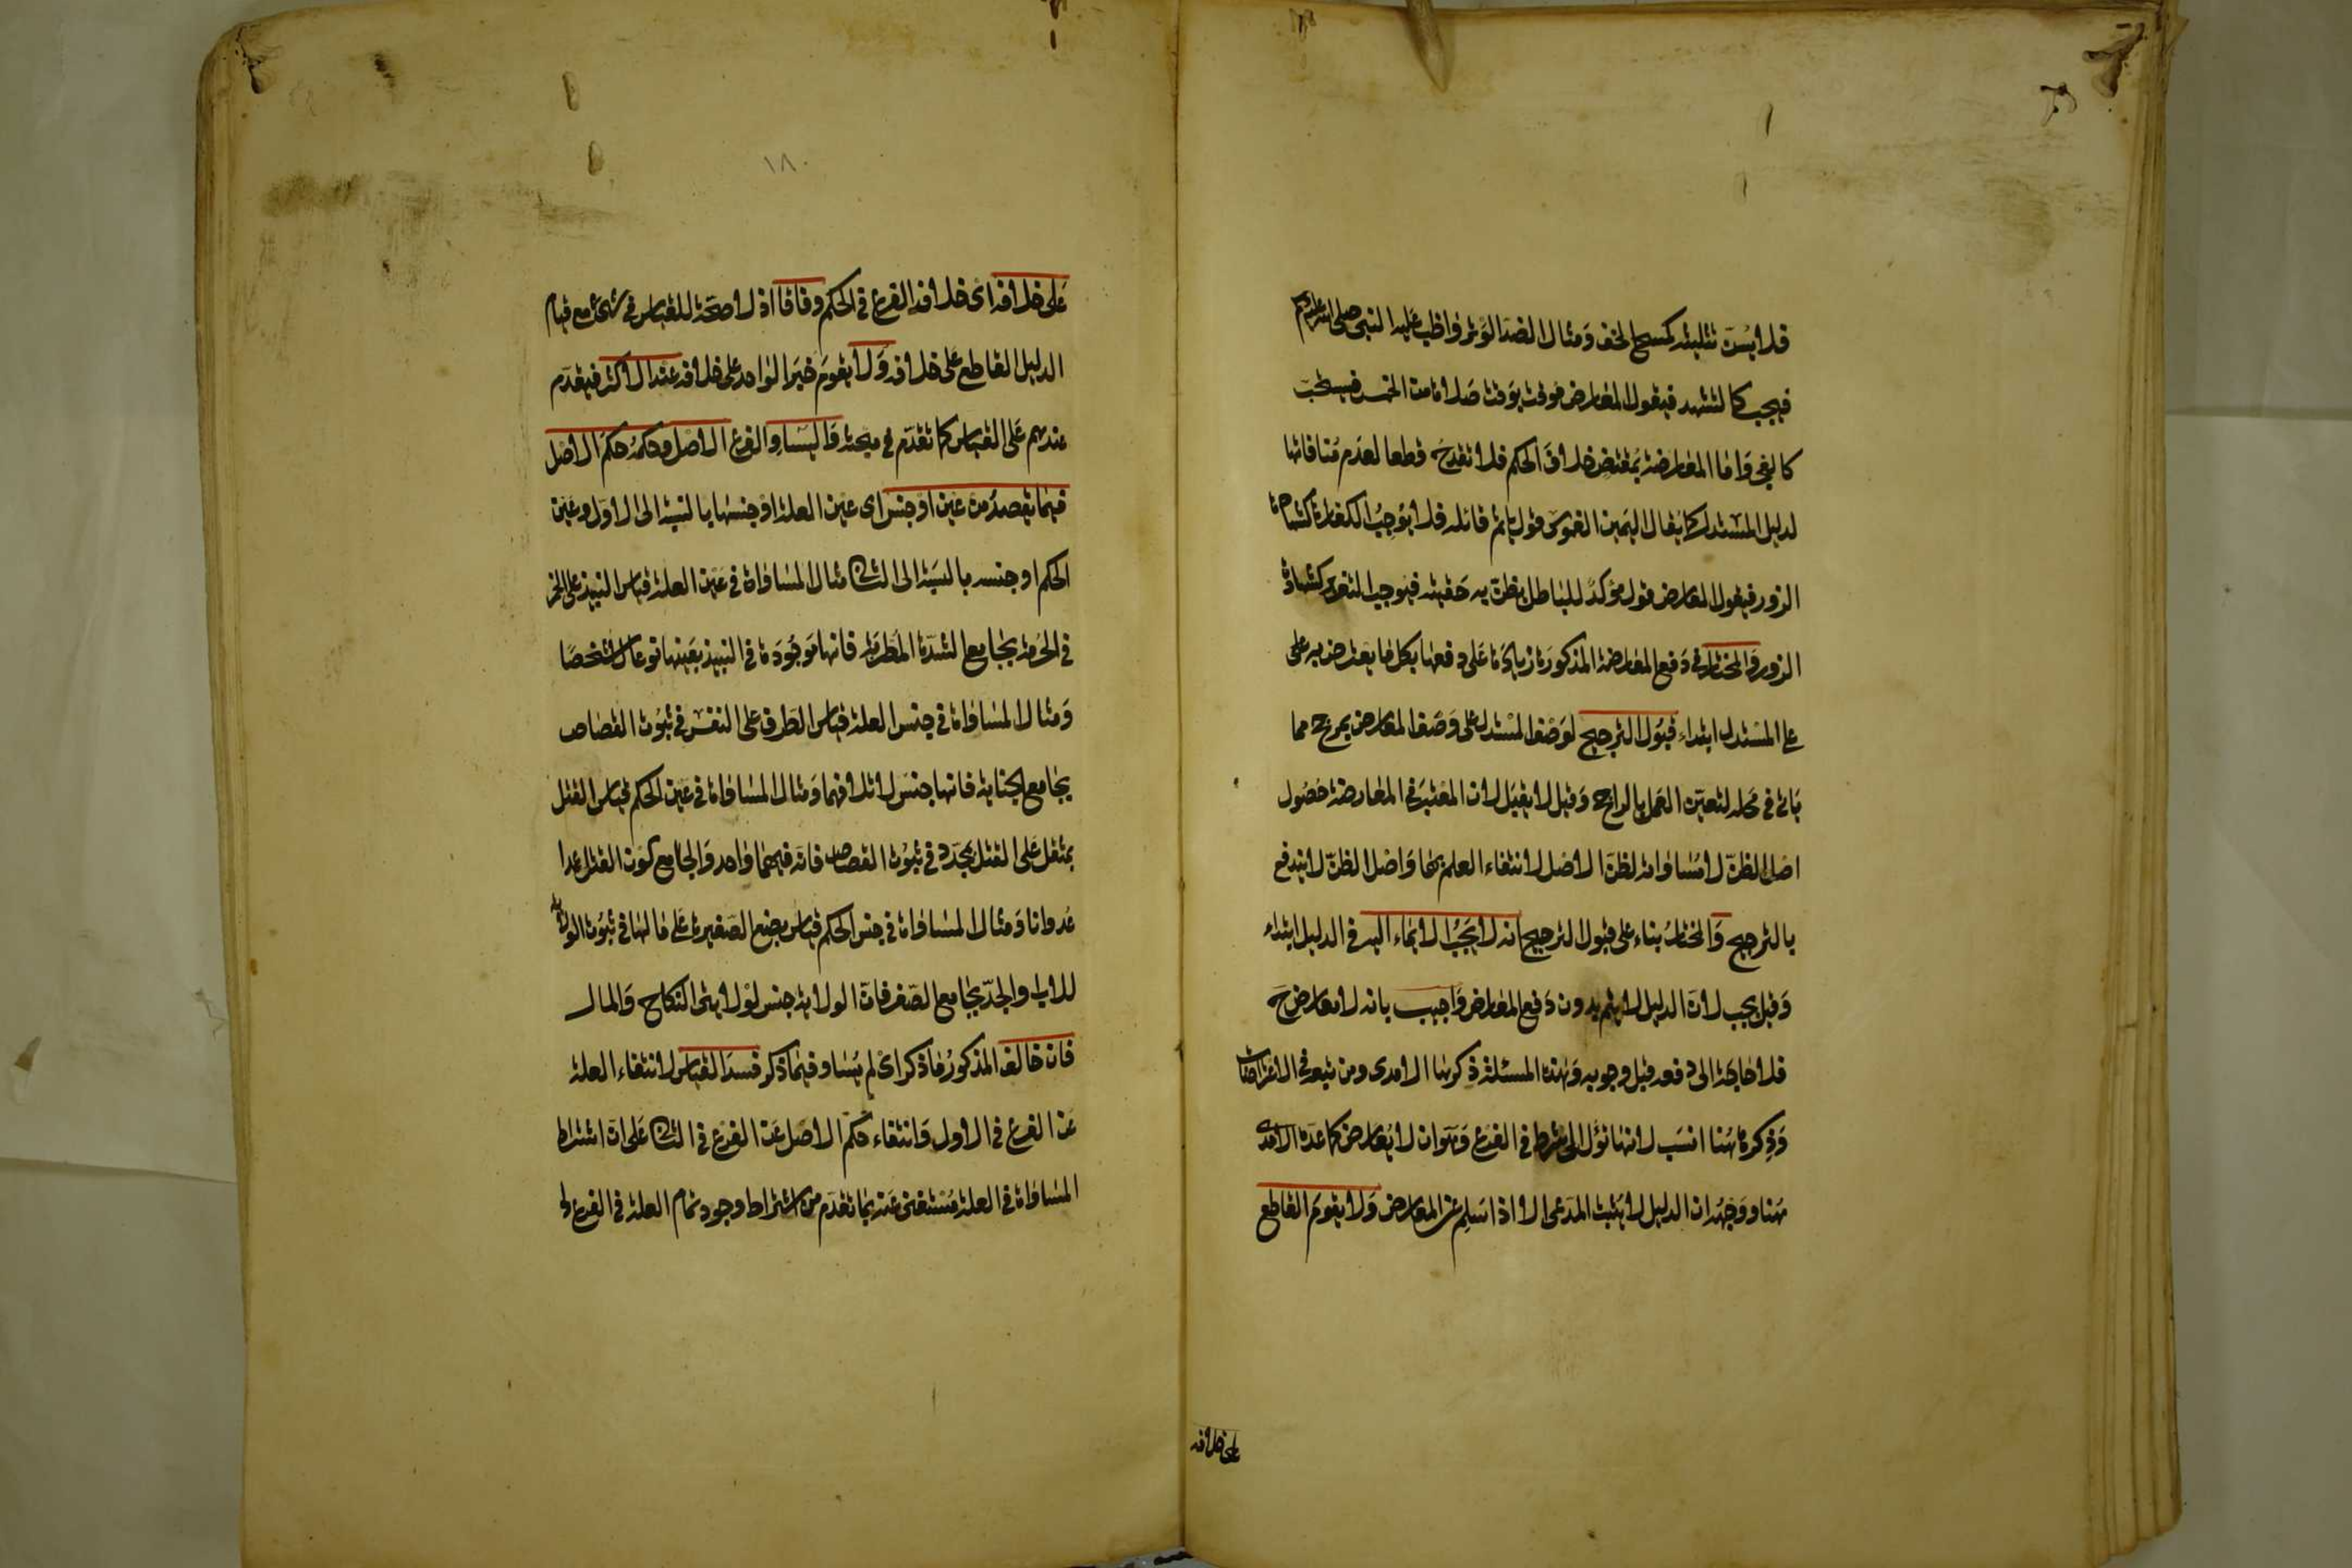 فلا يسن تثليثه كمسح الخف ومثال الضد الوتر واظب عليه النبي صلى الله عليه وسلم
فيجب كالتشهد فيقول المعارض موقت بوقت صلاة من الخمس فيستحب
كالفجر واما المعارضة بمقتض خلاف الحكم فلا تقدح قطعا لعدم منافاتها
لدليل المستدل كما يقال اليمين الغموس قول يأثم قائله فلا يوجب الكفارة كشهادة
الزور فيقول المعارض قول مؤكد للباطل يظن به حقيته فيوجب التعزير كشهادة
الزور والمختار في دفع المعارضة المذكورة زيادة على دفعها بكل ما يعترض به على
على المستدل ابتداء قبول الترجيح لوصف المستدل على وصف المعارض بمرجح مما
يأتي في محله لتعين العمل بالراجح وقيل لا يقبل لان المعتبر في المعارضة حصول
اصل الظن لا مساواته لظن الاصل لانتفاء العلم بها واصل الظن لا يندفع
بالترجيح والمختار بناء على قبول الترجيح انه لا يجب الايماء اليه في الدليل ابتداء
وقيل يجب لان الدليل لا يتم بدون دفع المعارض واجيب بانه لا معارض ح
فلا حاجة الى دفعه قبل وجوبه وهذه المسئلة ذكرها الامدى ومن تبعه في الاعتراضات
وذكره هنا انسب لانها تؤل الى شرط في الفرع وهو ان لا يعارض كما عده الامدى
هنا ووجه ان الدليل لا يثبت المدعى الا اذا سلم عن المعارض ولا يقوم القاطع
على خلافه
١٨٠
على خلافه اى خلاف الفرع في الحكم وفاقا اذ لا صحة للقياس في شئ مع قيام
الدليل القاطع على خلافه ولا يقوم خبر الواحد على خلافه عند الاكثر فيقدم
عندهم على القياس كما تقدم في مبحثه وليساو الفرع الاصل وحكمه حكم الاصل
فيما يقصد من عين او جنس اى عين العلة او جنسها بالنسبة الى الاول وعين
الحكم او جنسه بالنسبة الى الثانى مثال المساواة في عين العلة قياس النبيذ على الخمر
في الحرمة بجامع الشدة المطربة فانها موجودة في النبيذ بعينها نوعا لا شخصا
ومثال المساواة في جنس العلة قياس الطرف على النفس في ثبوت القصاص
بجامع الجناية فانها جنس لاتلافهما ومثال المساواة في عين الحكم قياس القتل
بمثقل على القتل بمحدد في ثبوت القصاص فانه فيهما واحد والجامع كون القتل عمدا
عدوانا ومثال المساواة في جنس الحكم قياس بضع الصغيرة على مالها في ثبوت الولاية
للاب والجد بجامع الصغر فان الولاية جنس لولايتى النكاح والمال
فان خالف المذكور ما ذكر اى لم يساو فيما ذكر فسد القياس لانتفاء العلة
عن الفرع في الاول وانتفاء حكم الاصل عن الفرع في الثانى على ان اشتراط
المساواة في العلة مستغنى عنه بما تقدم من اشتراط وجود تمام العلة في الفرع